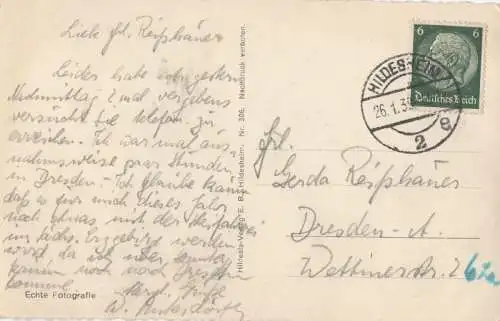 Liebe Frl. Reishauer
Leider habe ich gestern
Nachmittag 2 mal vergebens
versucht Sie telefon. zu
erreichen. Ich war mal aus-
nahmsweise paar Stunden
in Dresden. Ich glaube kaum
daß es für mich dieses Jahr
noch etwas mit der
im sächs. Erzgebirge werden
wird da ich über
kaum noch nach Dresden
komme.
Herzl.
W.
Echte Fotografie
Hilresta-Verlag E. B., Hildesheim. Nr. 306. Nachdruck verboten.
6 6
Deutsches Reich
HILDESHEIM
26.1.39
2
e
Frl.
Gerda Reishauer
Dresden-A.
Wettinerstr.
62a